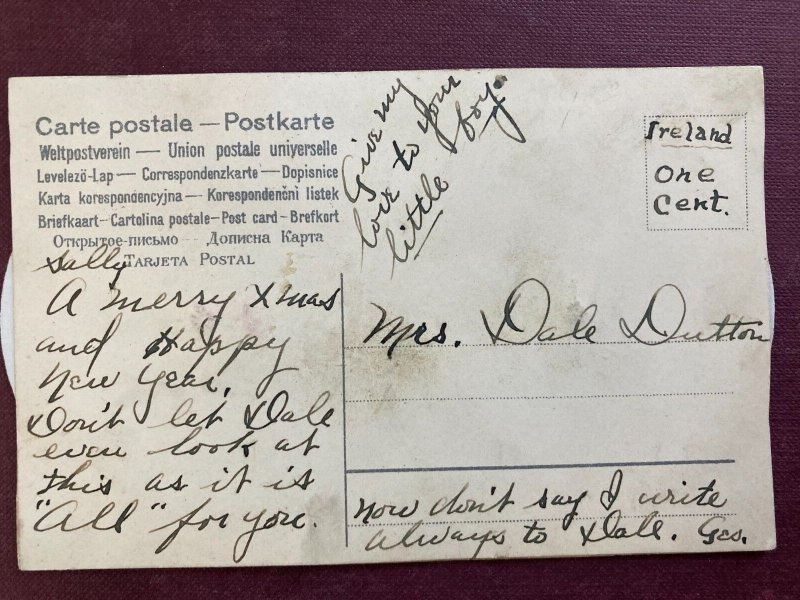 Carte postale — Postkarte
Weltpostverein — Union postale universelle
Levelező-Lap — Correspondenzkarte — Dopisnice
Karta korespondencyjna — Korespondenční listek
Briefkaart — Cartolina postale — Post card — Brefkort
Открытое-письмо — Дописна Карта
Tarjeta Postal
Sally
A merry Xmas
and Happy
New Year.
Don't let Dale
even look at
this as it is
"All" for you.
Give my
love to your
little boy.
Ireland
One
Cent.
Mrs. Dale Dutton
Now don't say I write
always to Dale. Geo.